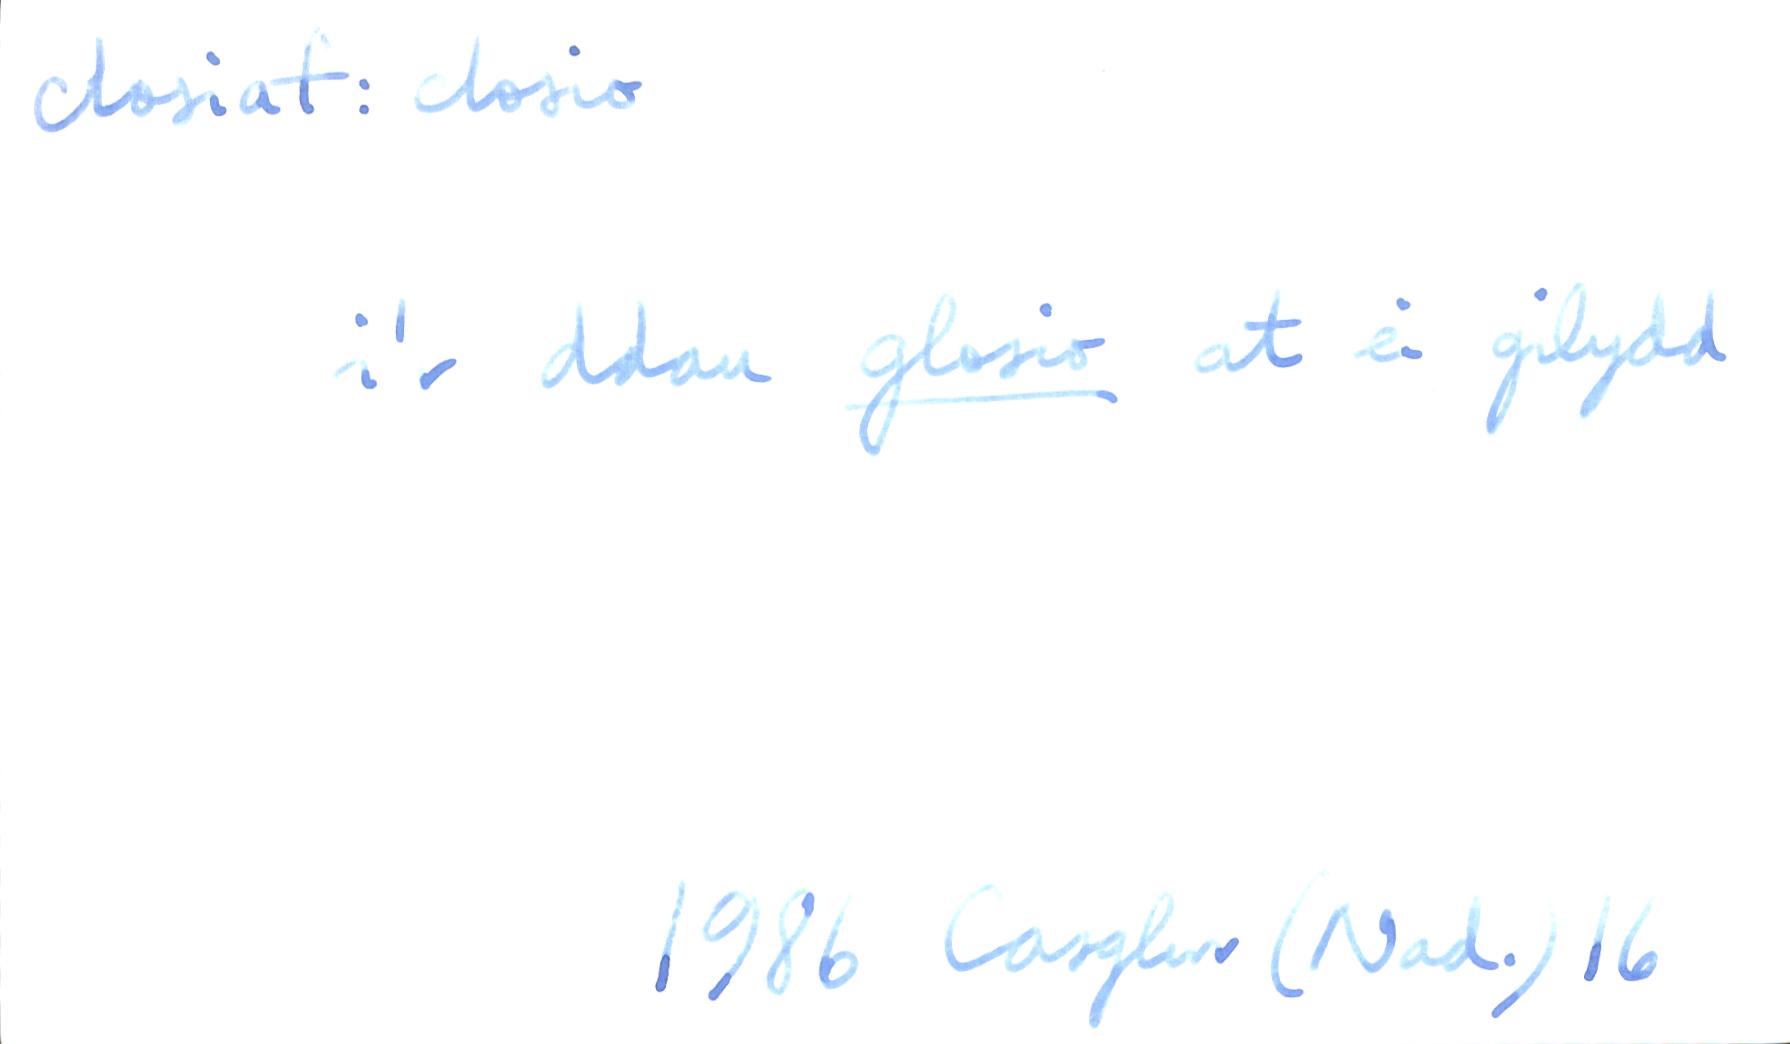 closiaf: closio
i'r ddau glosio at ei gilydd
1986 Casglwr (Nad.) 16